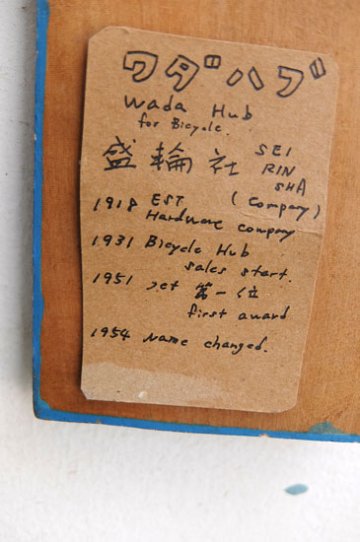 ワダハブ
Wada Hub
for Bicycle.
盛輪社 SEI
RIN
SHA
(Company)
1918 EST
Hardware company
1931 Bicycle Hub
sales start.
1951 Jet 第一位
first award
1954 Name changed.